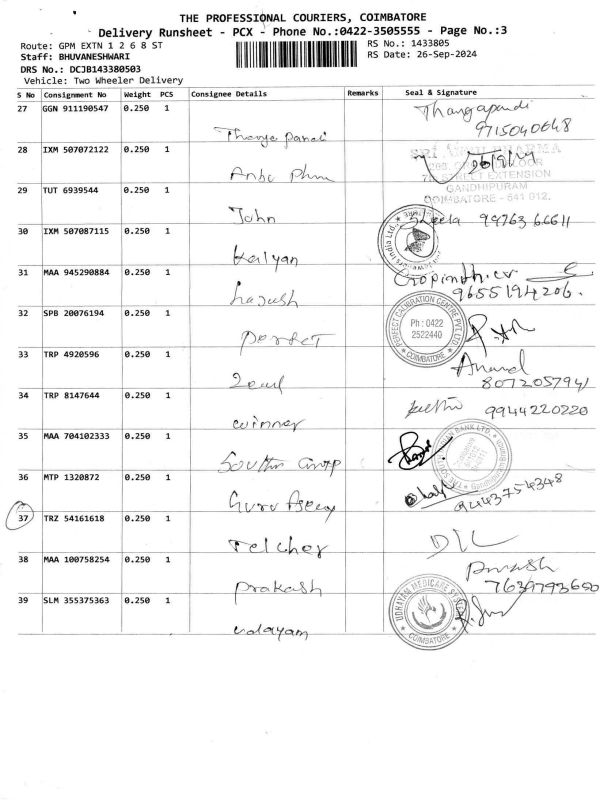 THE PROFESSIONAL COURIERS, COIMBATORE
Delivery Runsheet - PCX - Phone No.:0422-3505555 - Page No.:3
Route: GPM EXTN 1 2 6 8 ST
RS No.: 1433805
Staff: BHUVANESHWARI
RS Date: 26-Sep-2024
DRS No.: DCJB143380503
Vehicle: Two Wheeler Delivery
S No Consignment No Weight PCS Consignee Details Remarks Seal & Signature
27 GGN 911190547 0.250 1 Thangapandi
9715040648
28 IXM 507072122 0.250 1
SRI PHARMA
FLOOR
STREET EXTENSION
GANDHIPURAM
COIMBATORE - 641 012.
26/9/24
29 TUT 6939544 0.250 1
John Sheela 9976366611
30 IXM 507087115 0.250 1
Kalyan
31 MAA 945290884 0.250 1
9655194206.
32 SPB 20076194 0.250 1
PERFECT CALIBRATION CENTRE PVT LTD
Ph : 0422
2522440
COIMBATORE
33 TRP 4920596 0.250 1 Anand
8072057941
34 TRP 8147644 0.250 1 9944220220
winner
35 MAA 704102333 0.250 1
South
36 MTP 1320872 0.250 1
9443754348
Guru
37 TRZ 54161618 0.250 1
Telcher
38 MAA 100758254 0.250 1
prakash 7639793650
39 SLM 355375363 0.250 1
UDHAYAM MEDICARE
COIMBATORE
udayam